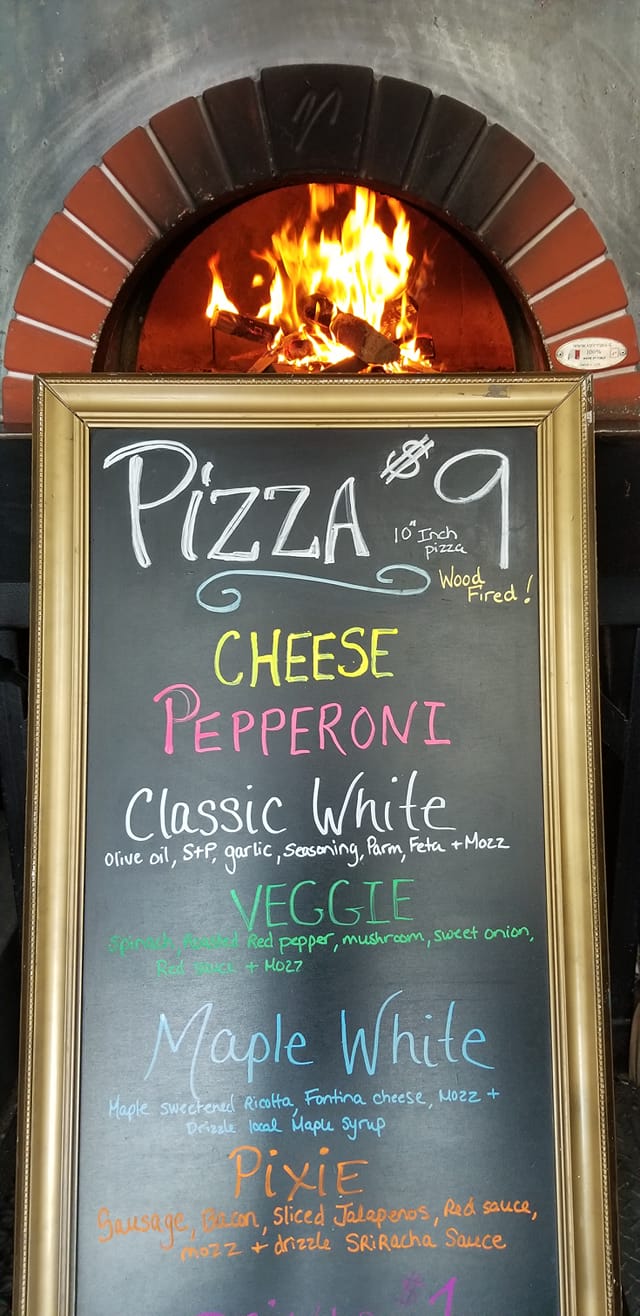 PizzA $9
10" Inch
pizza
Wood
Fired!
CHEESE
PEPPERONI
Classic White
Olive oil, S+P, garlic, Seasoning, Parm, Feta + Mozz
VEGGIE
Spinach, Roasted Red pepper, mushroom, sweet onion,
Red sauce + Mozz
Maple White
Maple sweetened Ricotta, Fontina cheese, Mozz +
Drizzle local Maple syrup
PixiE
Sausage, Bacon, Sliced Jalapenos, Red sauce,
mozz + drizzle SRiRacha Sauce
$1
100%